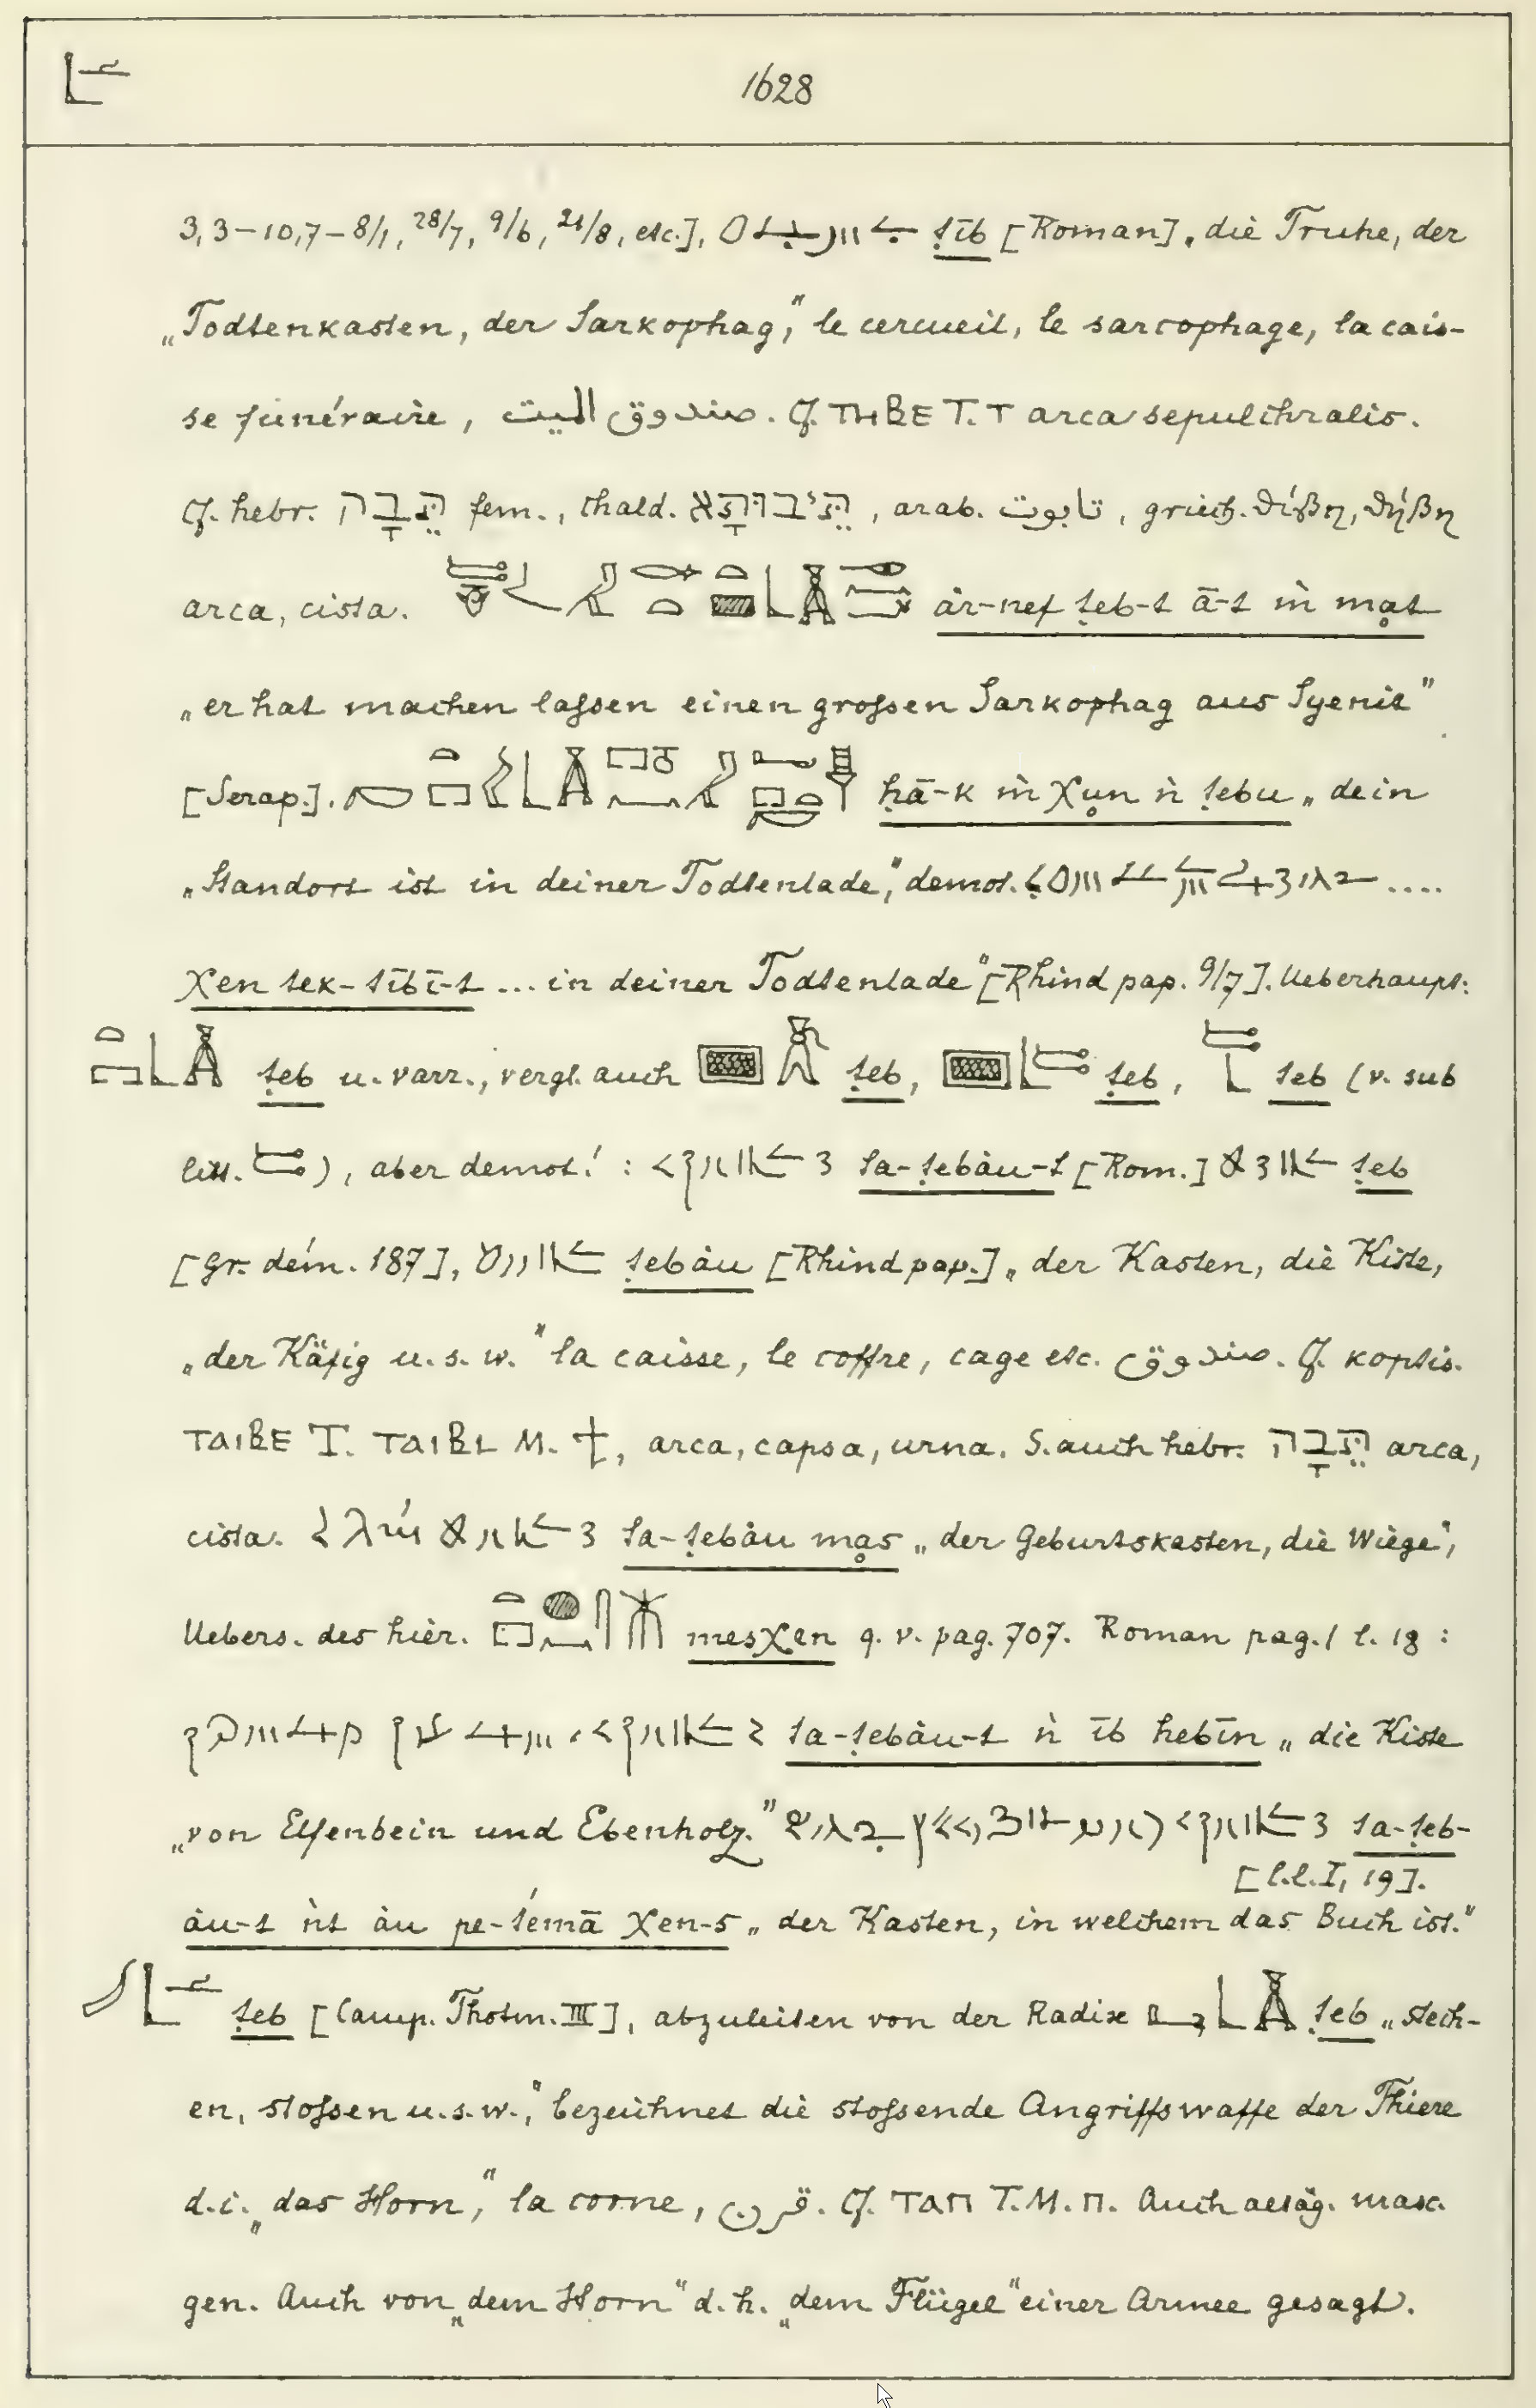 1628
3,3–10,7–8/1, 28/7, 9/6, 21/8, etc.], ṭīb [Roman] „die Truhe, der
„Todtenkasten, der Sarkophag,“ le cercueil, le sarcophage, la cais-
se funéraire, صندوق الميت. Cf. ⲦⲎⲂⲈ T. ⲧ arca sepulchralis.
Cf. hebr. תֵּבָה fem., chald. תֵּיבוּתָא, arab. تابوت, griech. θίβη, θήβη
arca, cista. ȧr-nef ṭeb-t ā-t ṁ mạt
„er hat machen lassen einen grossen Sarkophag aus Syenit“
[Serap.]. ḥā-k ṁ χụn ṅ ṭebu „dein
„Standort ist in deiner Todtenlade,“ demot. ....
χen tek-tībī-t ... in deiner Todtenlade“ [Rhind pap. 9/7]. Ueberhaupt:
ṭeb u. varr., vergl. auch ṭeb, ṭeb, teb (v. sub
litt. ), aber demot.: ta-ṭebȧu-t [Rom.] ṭeb
[Gr. dém. 187], ṭebȧu [Rhind pap.] „der Kasten, die Kiste,
„der Käfig u.s.w.“ la caisse, le coffre, cage etc. صندوق. Cf. koptis.
ⲦⲀⲒⲂⲈ T. ⲦⲀⲒⲂⲒ M. ϯ, arca, capsa, urna. S. auch hebr. תֵּבָה arca,
cista. ta-ṭebȧu mạs „der Geburtskasten, die Wiege“,
Uebers. des hier. mesχen q. v. pag. 707. Roman pag. 1 l. 18:
ta-ṭebȧu-t ṅ īb hebīn „die Kiste
„von Elfenbein und Ebenholz.“ ta-ṭeb-
[l.l. I, 19].
ȧu-t ṅt ȧu pe-t́emā χen-s „der Kasten, in welchem das Buch ist.“
ṭeb [Camp. Thotm. III], abzuleiten von der Radix ṭeb „stech-
en, stossen u.s.w.“, bezeichnet die stossende Angriffswaffe der Thiere
d.i. „das Horn,“ la corne, قرن. Cf. ⲦⲀⲠ T. M. ⲡ. Auch altäg. masc.
gen. Auch von „dem Horn“ d.h. „dem Flügel“ einer Armee gesagt.